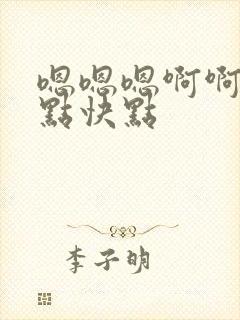 嗯嗯嗯啊啊
點快點
李子明